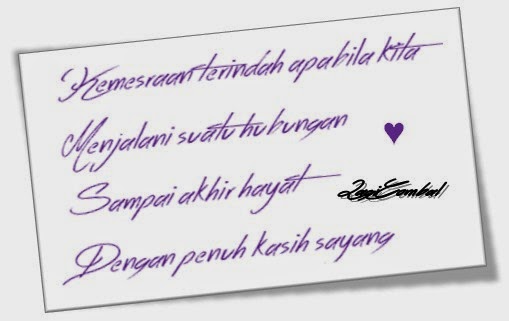 Kemesraan terindah apabila kita
Menjalani suatu hubungan
Sampai akhir hayat
Dengan penuh kasih sayang